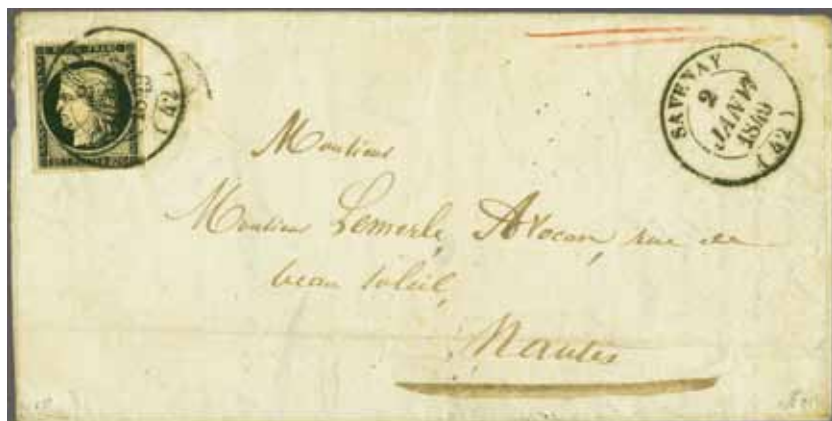 SAVENAY
2
JANV
1849
(42)
(42)
Monsieur
Monsieur Lemerle, Avocat, rue de
beau soleil,
Nantes